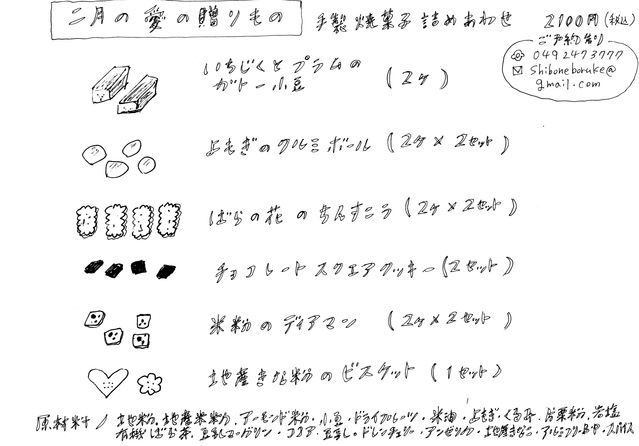 二月の愛の贈りもの
手製焼菓子詰めあわせ 2100円(税込)
ご予約制り
0492473777
shiboneboruke@
gmail.com
いちじくとプラムの
ガトー小豆 (2ヶ)
よもぎのクルミボール (2ヶ×2セット)
ばらの花のちんすこう (2ヶ×2セット)
チョコレートスクエアクッキー (2セット)
米粉のディアマン (2ヶ×2セット)
地産きな粉のビスケット (1セット)
原材料/地粉、地産米粉、アーモンド粉・小豆・ドライフルーツ・米油・よもぎ・くるみ・片栗粉・岩塩
有機しばら茶・豆乳マーガリン・ココア・豆乳・ドレンチェリー・アンゼリカ・地産きなこ・アルミフリーB.P・スパイス